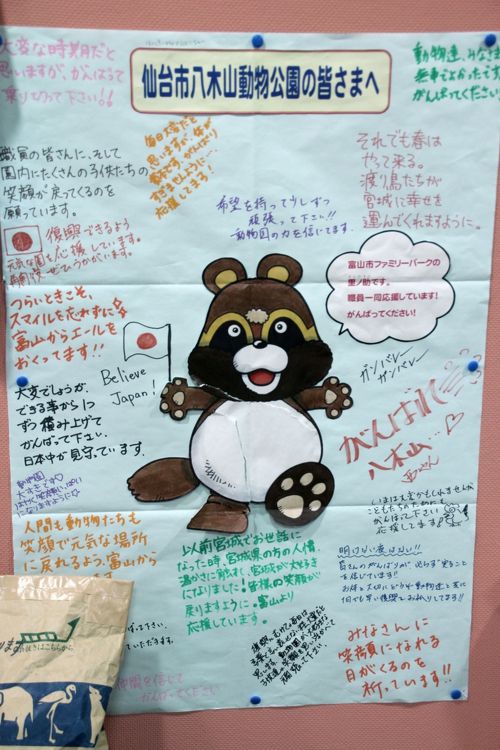 仙台市八木山動物公園の皆さまへ
大変な時期だと
思いますが、がんばって
乗りきって下さい!!
動物達、みなさま
無事でよかったです
がんばってください
毎日大変だと
思いますが、
応援してます!
職員の皆さんに、そして
園内にたくさんの子供たちの
笑顔が戻ってくるのを
願っています。
それでも春は
やって来る。
渡り鳥たちが
宮城に幸せを
運んでくれますように。
希望を持って少しずつ
頑張って下さい!!
動物園の力を信じてます。
復興できるよう
元気な園を応援しています。
富山市ファミリーパークの
里ノ助です。
職員一同応援しています!
がんばってください!
つらいときこそ、
スマイルを忘れずに
富山からエールを
おくってます!!
Believe
Japan!
ガンバレー
ガンバレー
がんばれ
八木山
大変でしょうが、
できる事から1つ
ずつ積み上げて
がんばって下さい。
日本中が見守っています。
動物園
大すきです
いまは大変かもしれませんが
こどもたちのためにも
がんばって下さい
応援してます!
人間も動物たちも
笑顔で元気な場所
に戻れるよう、富山から
以前宮城でお世話に
なった時、宮城県の方の人情、
温かさに触れて、宮城が大好き
になりました!皆様の笑顔が
戻りますように。富山より
応援しています。
明けない夜はない!!
皆さんのがんばりが必らず実ること
を信じています!!
みなさんに
笑顔になれる
日がくるのを
祈っています!!
仲間を信じて
がんばってください